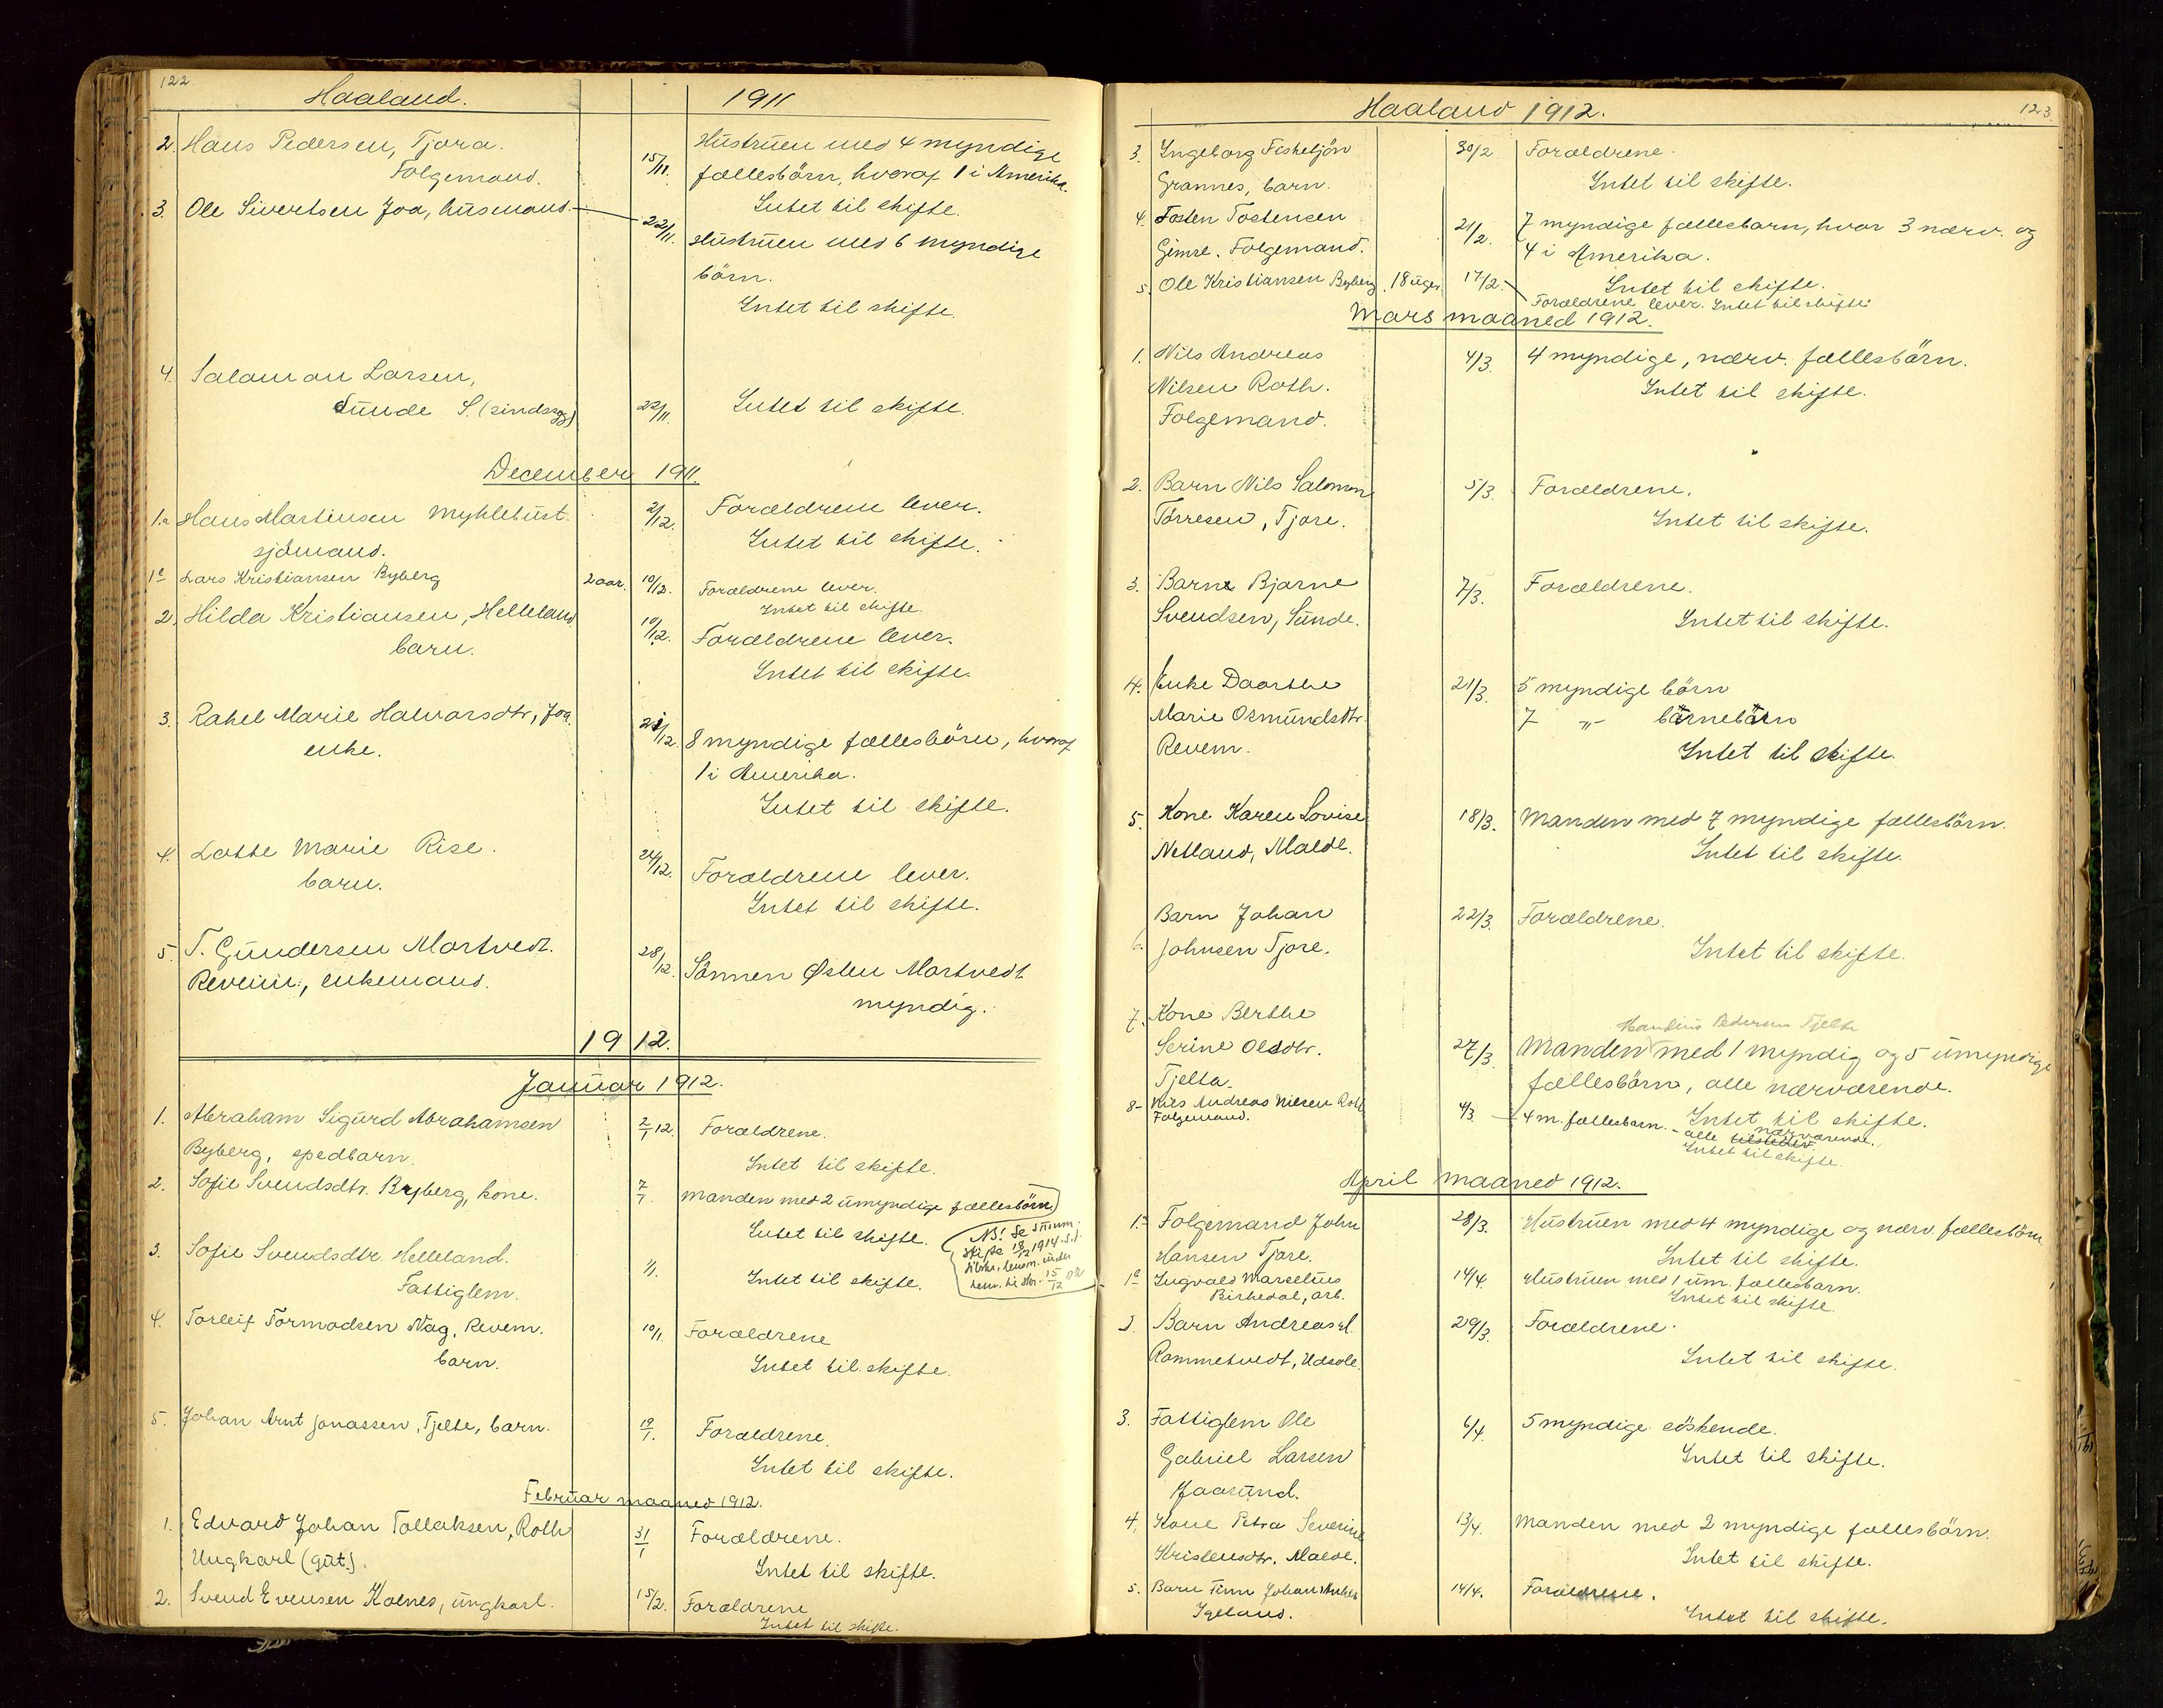 122
Haaland.
1911
2. Hans Pedersen, Tjora.
Folgemand.
15/11.
Hustruen med 4 myndige
fællesbörn, hvoraf 1 i Amerika.
Intet til skifte.
3. Ole Sivertsen Joa, husmand.
22/11.
Hustruen med 6 myndige
börn.
Intet til skifte.
4. Salamon Larsen,
Sunde S. (sindssyg)
22/11.
Intet til skifte.
December 1911.
1.a Hans Martinsen Myklebust.
sjömand.
2/12.
Forældrene lever.
Intet til skifte.
1c Lars Kristiansen Byberg
2 aar.
10/12.
Forældrene lever.
Intet til skifte.
2. Hilda Kristiansen, Helleland
barn.
10/12.
Forældrene lever.
Intet til skifte.
3. Rahel Marie Halvorsdtr, Joa.
enke.
21/12.
8 myndige fællesbörn, hvoraf
1 i Amerika.
Intet til skifte.
4. Lotte Marie Rise.
barn.
24/12.
Forældrene lever.
Intet til skifte.
5. T. Gundersen Mortvedt.
Reveim, enkemand.
28/12.
Sönnen Østen Mortvedt
myndig.
1912.
Januar 1912.
1. Abraham Sigurd Abrahamsen
Byberg, spedbarn.
2/1 12.
Forældrene.
Intet til skifte.
2. Sofie Svendsdtr. Byberg, kone.
7/1.
Manden med 2 umyndige fællesbörn
Intet til skifte.
NB! Se summ.
skifte 18/12 1914
15/12
3. Sofie Svendsdtr. Helleland.
Fattiglem.
1/1.
Intet til skifte.
4. Torleif Tormodsen Nag, Revem.
barn.
10/1.
Forældrene
Intet til skifte.
5. Johan Arnt Jonassen, Tjelte, barn.
19/1.
Forældrene.
Intet til skifte.
Februar maaned 1912.
1. Edvard Johan Tollaksen, Roth
Ungkarl (gut).
31/1
Forældrene.
Intet til skifte.
2. Svend Evensen Kolnes, ungkarl.
15/2.
Forældrene
Intet til skifte.
Haaland 1912.
123
3. Ingeborg Fisketjön
Grannes, barn.
30/2
Forældrene.
Intet til skifte.
4. Tosten Tostensen
Gimre. Folgemand.
21/2.
7 myndige fællesbarn, hvor 3 nærv. og
4 i Amerika.
Intet til skifte.
5. Ole Kristiansen Byberg
18 uger
17/2.
Forældrene lever. Intet til skifte
Mars maaned 1912.
1. Nils Andreas
Nilsen Roth.
Folgemand.
4/3.
4 myndige, nærv. fællesbörn.
Intet til skifte.
2. Barn Nils Salomon
Torresen, Tjore.
5/3.
Forældrene.
Intet til skifte.
3. Barn Bjarne
Svendsen, Sunde.
7/3.
Forældrene.
Intet til skifte.
4. Enke Daarthe
Marie Osmundsdtr
Revem.
21/3.
5 myndige börn
7 -"- börnebörn
Intet til skifte.
5. Kone Karen Lovise
Netland, Malde.
18/3.
Manden med 7 myndige fællesbörn.
Intet til skifte.
6. Barn Johan
Johnsen Tjore.
22/3.
Forældrene.
Intet til skifte.
7. Kone Berthe
Serine Olsdtr.
Tjelta.
27/3.
Pedersen Tjelta
Manden med 1 myndig og 5 umyndige
fællesbörn, alle nærværende.
Intet til skifte.
8- Nils Andreas Nilsen Roth
Folgemand.
4/3
4 m. fællesbarn. - alle tilstede nærværende.
Intet til skifte.
April maaned 1912.
1.a Folgemand John
Hansen Tjore.
28/3.
Hustruen med 4 myndige og nærv. fællesbörn
Intet til skifte.
1c Ingvald Marselius
Birkedal, arb.
14/4.
Hustruen med 1 um. fællesbarn.
Intet til skifte.
2. Barn Andreas
Rommetvedt, Udsole.
29/3.
Forældrene.
Intet til skifte.
3. Fattiglem Ole
Gabriel Larsen
Jaasund.
6/4.
5 myndige söskende.
Intet til skifte.
4. Kone Petra Severine
Kristensdtr. Malde.
13/4.
Manden med 2 myndige fællesbörn.
Intet til skifte.
5. Barn Finn Johan
Igeland.
14/4.
Forældrene.
Intet til skifte.